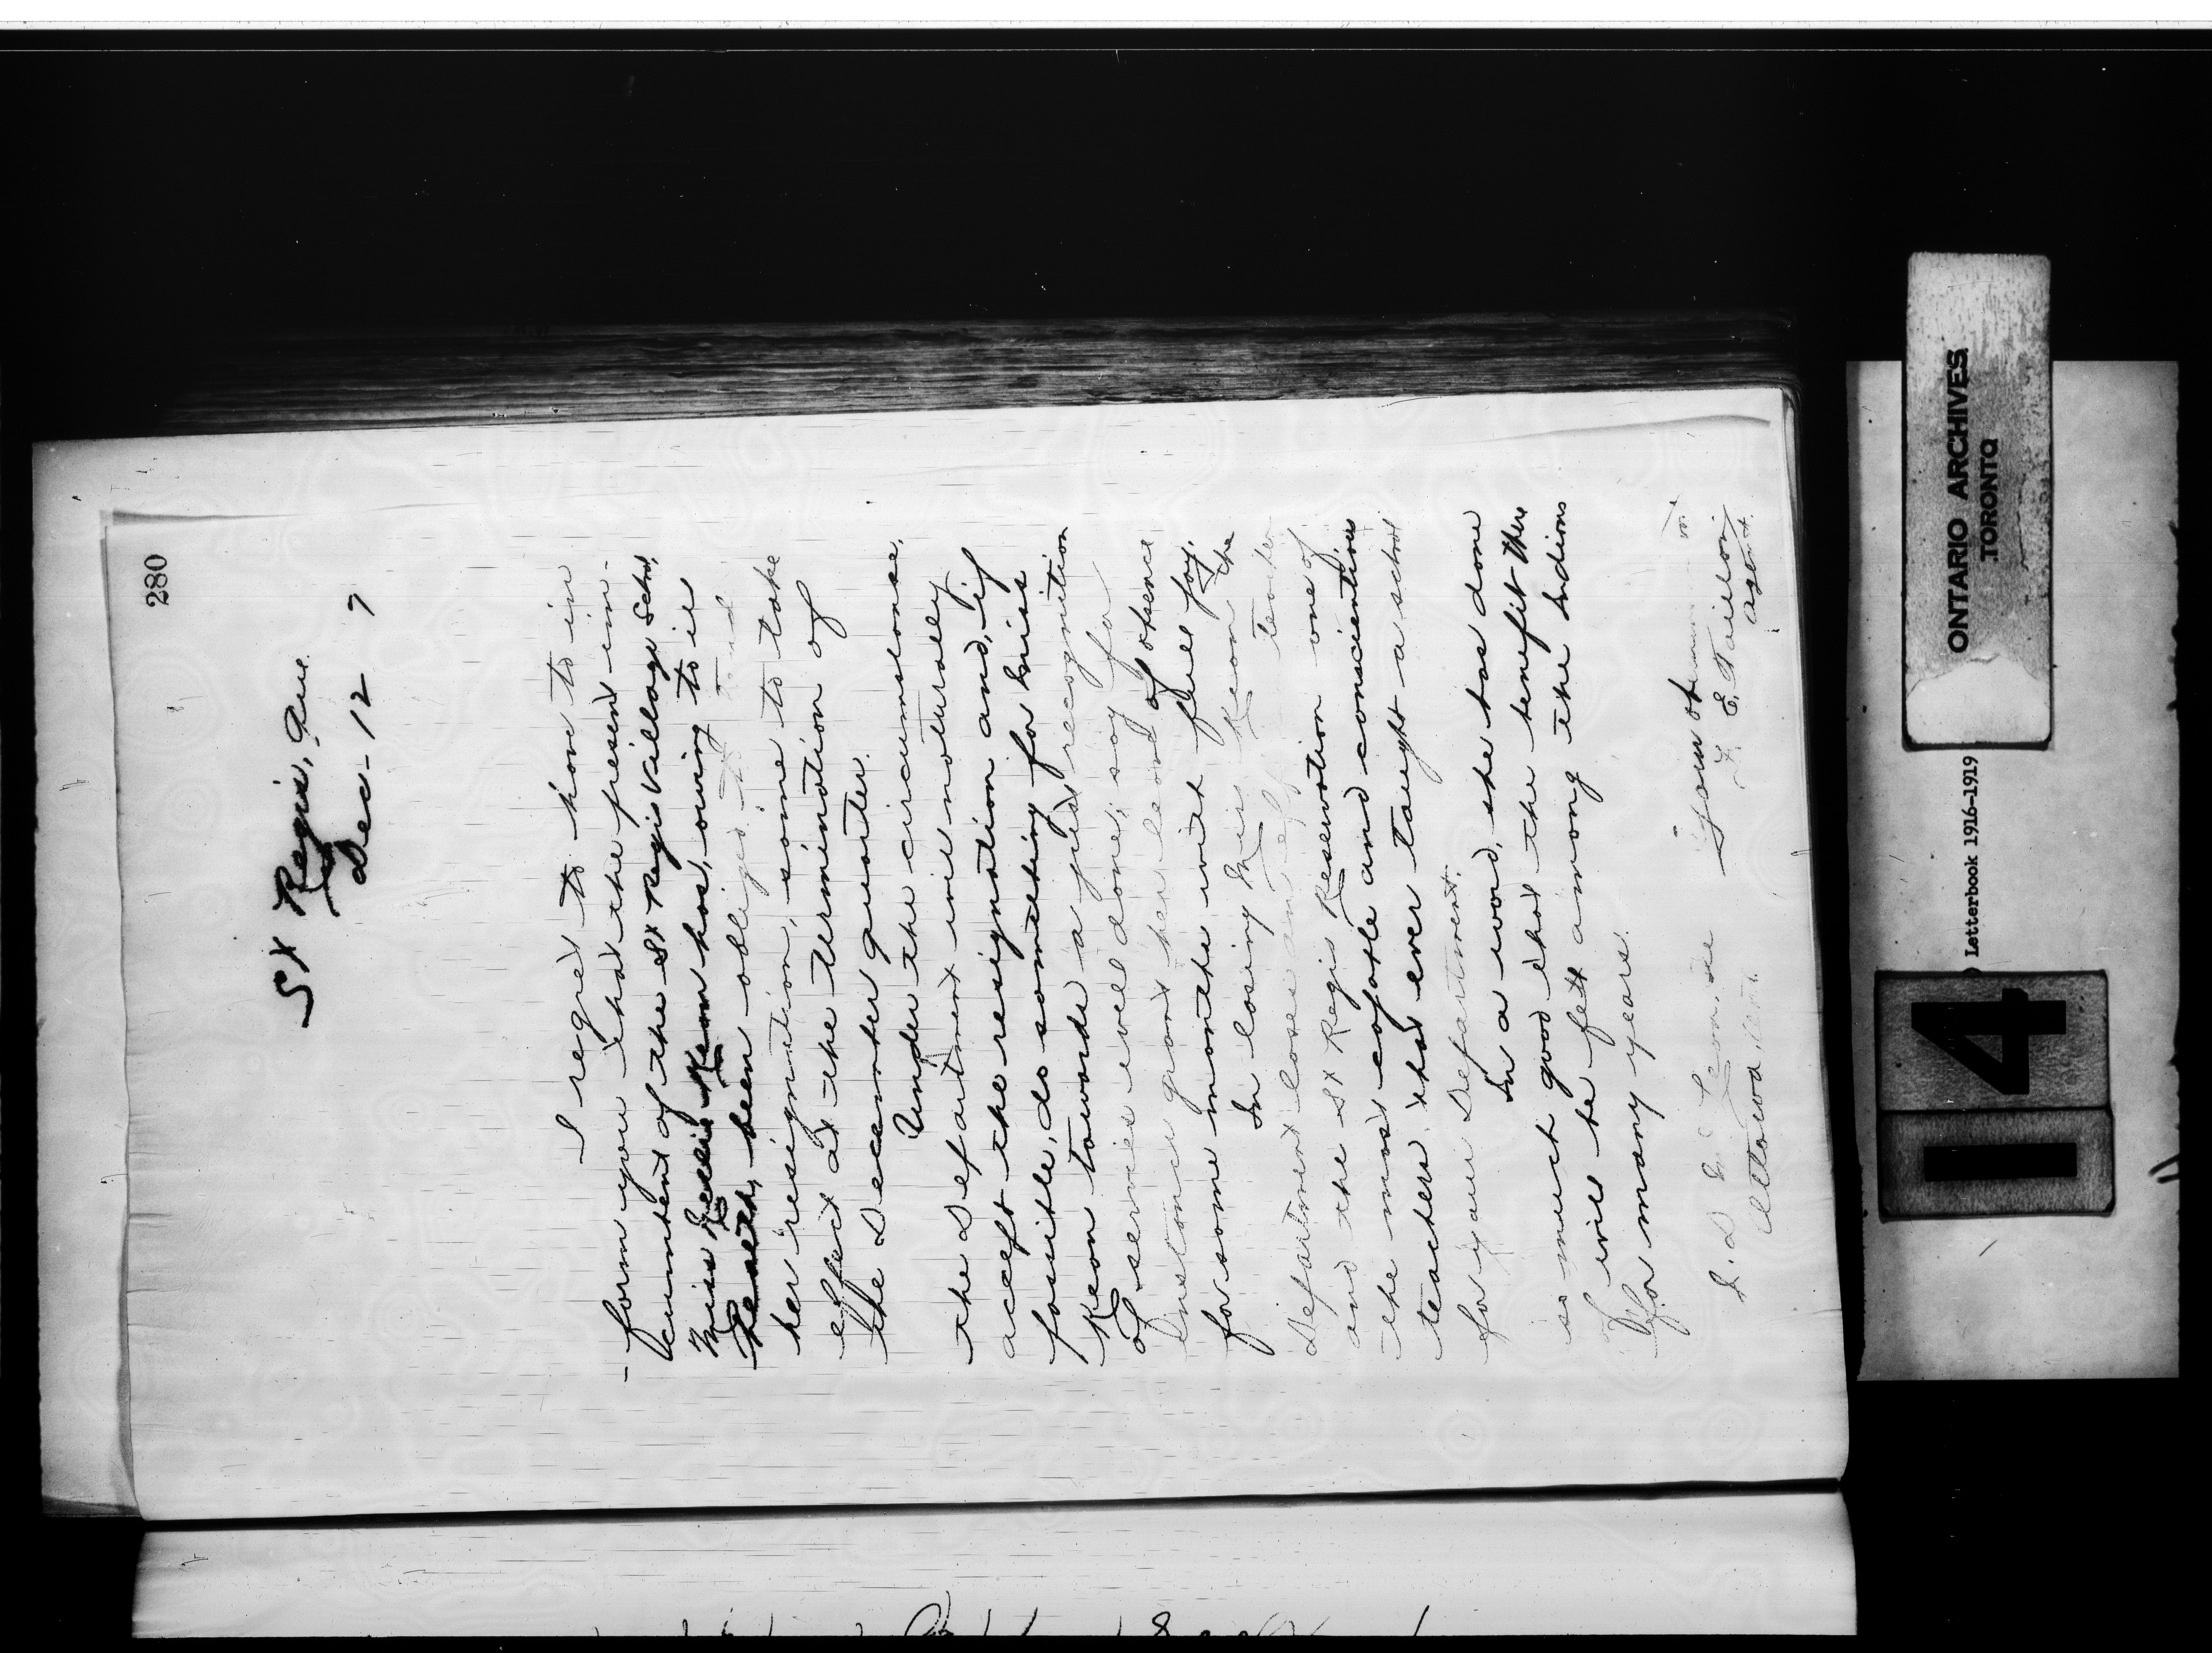 280
St Regis, Que.
Dec - 12 7
I regret to have to in
- form you that the present in-
cumbent of the St Regis Village School,
Miss Keon has, owing to ill
health, been obliged to
her resignation, same to take
effect at the termination of
the December quarter.
Under the circumstance,
the Department will naturally
accept the resignation and, if
possible, do something for Miss
Keon towards a just recognition
of services well done, say for
instance grant her leave of absence
for some months with full pay.
In losing Miss Keon the
Department loses an teacher
and the St Regis Reservation one of
the most capable and conscientious
teachers that ever taught a school
for your Department.
In a word, she has done
so much good that the benefit there
of will be felt among the Indians
for many years.
Your ob
J. D. McLean
F. E. Taillon
Ottawa, Ont.
Agent.
ONTARIO ARCHIVES
TORONTO
Letterbook 1916-1919
14